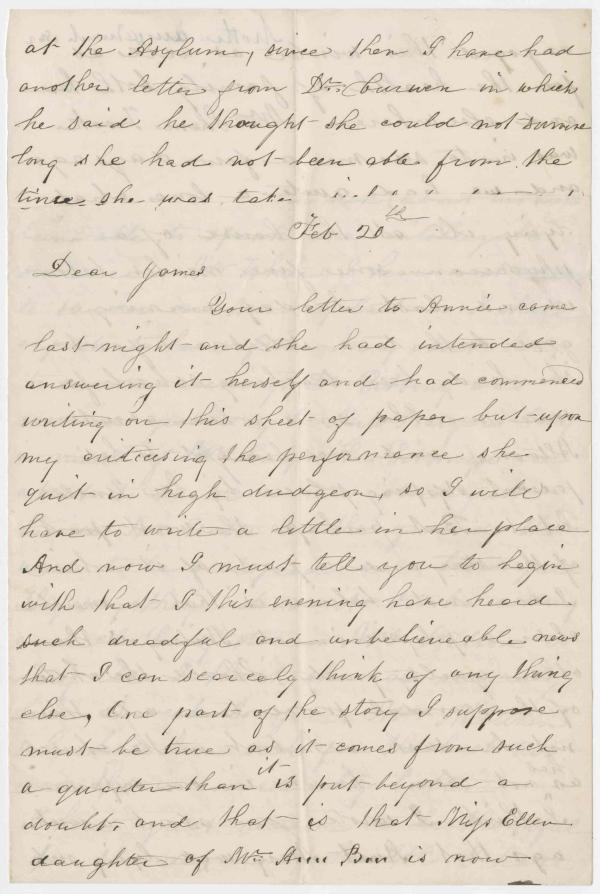 at the Asylum, since then I have had
another letter from Dr. Curwen in which
he said he thought she could not survive
long she had not been able from the
time she was take
Feb 20th
Dear James
Your letter to Annie came
last night and she had intended
answering it herself and had commenced
writing on this sheet of paper but upon
my criticising the performance she
quit in high dudgeon, so I will
have to write a little in her place
And now I must tell you to begin
with that I this evening have heard
such dreadful and unbelieveable news
that I can scarcely think of any thing
else, One part of the story I suppose
must be true as it comes from such
a quarter than it is put beyond a
doubt, and that is that Miss Ellen
daughter of Mrs. Ann is now